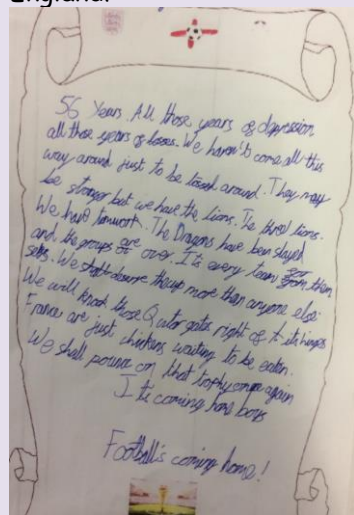 England.
56 Years. All those years of depression
all those years of losses. We haven't come all this
way around just to be tossed around. They may
be stonger but we have the lions. The three lions.
We have temwork. The Dragons have been slayed
and the groups are over. Its every team for them
selfs. We deserve the cup more than anyone else.
We will knock those Qatar gates right of to its hinges
France are just chickens waiting to be eaten.
We shall pounce on that trophy once again
Its coming home boys
Football's coming home!